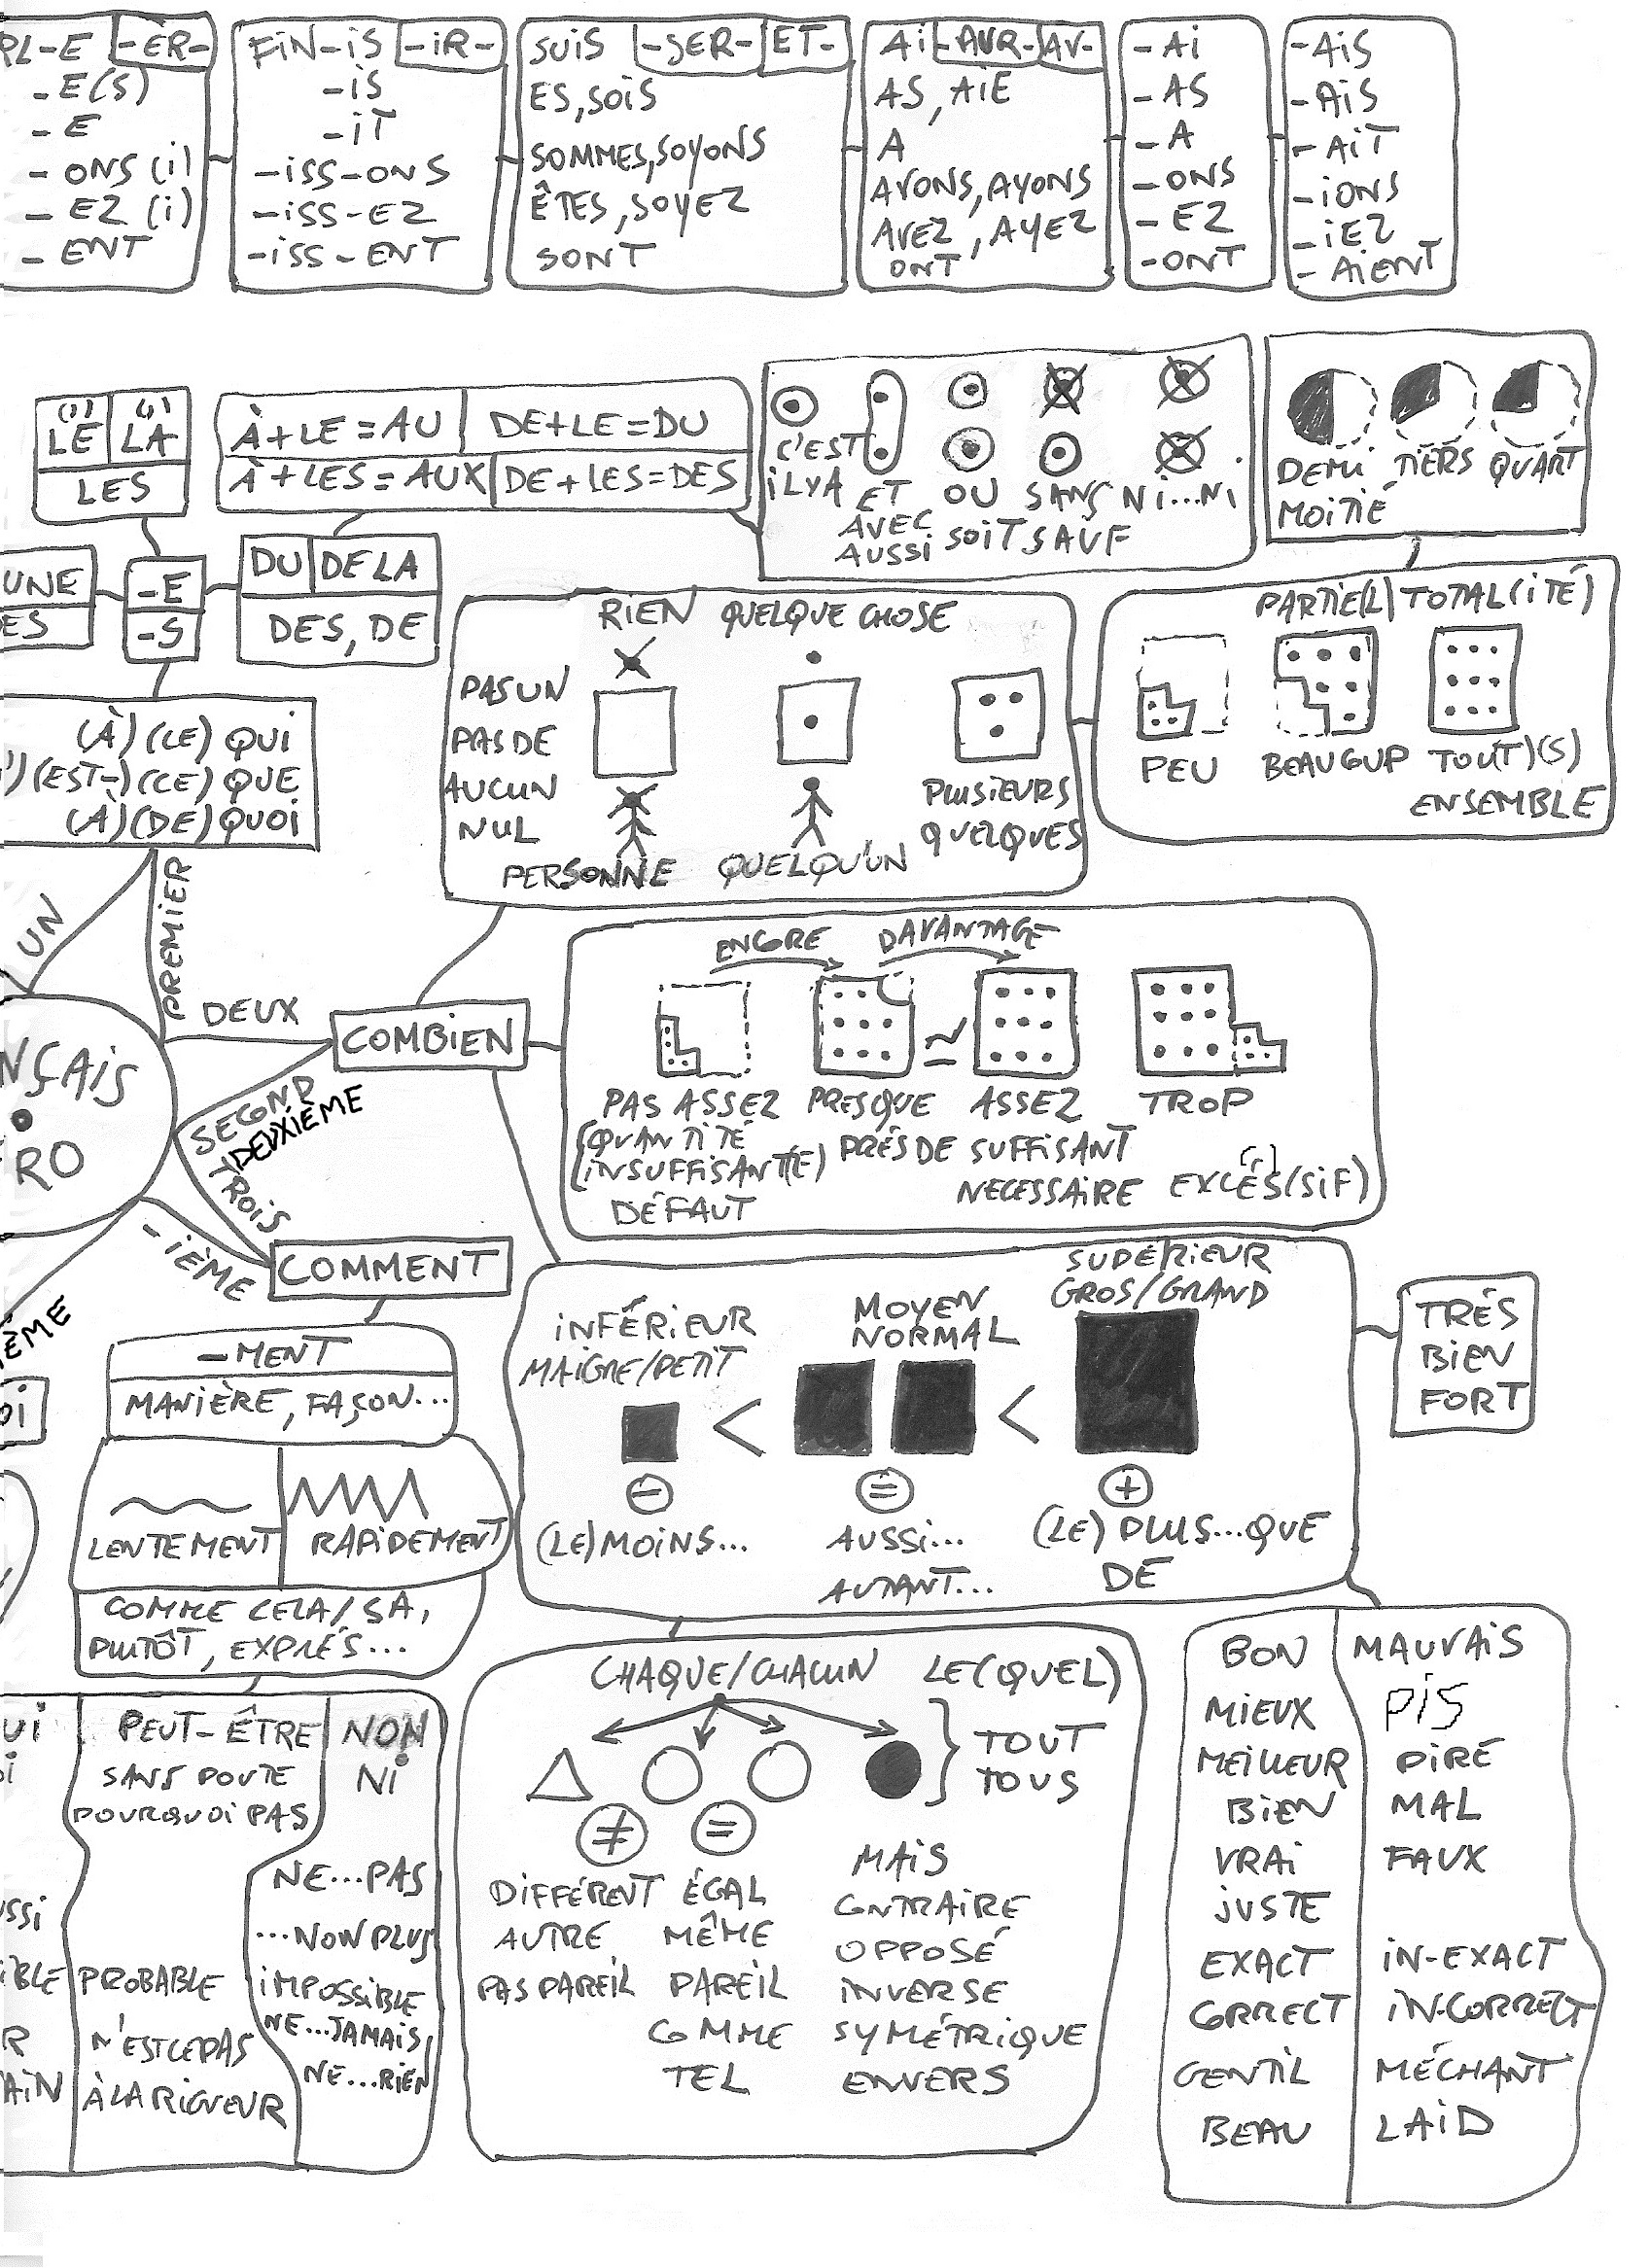 RL-E -ER-
-E(S)
-E
-ONS (i)
-EZ (i)
-ENT
FIN-iS -iR-
-iS
-iT
-iSS-ONS
-iSS-EZ
-iSS-ENT
SUiS -SER- ET-
ES, SOiS
SOMMES, SOYONS
ÊTES, SOYEZ
SONT
Ai -AUR- AV-
AS, AiE
A
AVONS, AYONS
AVEZ, AYEZ
ONT
-Ai
-AS
-A
-ONS
-EZ
-ONT
-AiS
-AiS
-AiT
-iONS
-iEZ
-AiENT
LE LA
LES
À+LE=AU DE+LE=DU
À+LES=AUX DE+LES=DES
C'EST
iLYA
ET
AVEC
AUSSi
OU
SOiT
SANS
SAUF
Ni...Ni
DEMi TiERS QUART
MOiTiÉ
UNE
ES
-E
-S
DU DE LA
DES, DE
RiEN QUELQUE CHOSE
PAS UN
PAS DE
AUCUN
NUL
PERSONNE
QUELQU'UN
PLUSiEURS
QUELQUES
PARTiE(L) TOTAL(iTÉ)
PEU BEAUCOUP TOU(T)(S)
ENSEMBLE
(À)(CE) QUI
')(EST-)(CE) QUE
(À)(DE) QUOi
UN
PREMiER
DEUX
COMBiEN
NÇAiS
RO
SECOND
DEUXIÈME
TROiS
-iÈME
COMMENT
iÈME
Oi
ENCORE DAVANTAGE
PAS ASSEZ
(QUANTiTÉ
iNSUFFiSANT(E)
DÉFAUT
PRESQUE
PRÉS DE
≃
ASSEZ
SUFFiSANT
NECESSAiRE
TROP
EXCÉS(SiF)
iNFÉRiEUR
MAiGRE/PETiT
MOYEN
NORMAL
SUPÉRiEUR
GROS/GRAND
< <
- = +
(LE) MOiNS... AUSSi... (LE) PLUS...QUE
AUTANT... DE
TRÉS
BiEN
FORT
-MENT
MANiÈRE, FAÇON...
LENTEMENT RAPiDEMENT
COMME CELA/SA,
PLUTÔT, EXPRÉS...
Ui
Oi
USSi
iBLE
R
AiN
PEUT-ÊTRE
SANS DOUTE
POURQUOi PAS
PROBABLE
N'EST CE PAS
À LA RiGUEUR
NON
Ni
NE...PAS
...NON PLUS
iMPOSSiBLE
NE...JAMAiS
NE...RiEN
CHAQUE/CHACUN LE(QUEL)
TOUT
TOUS
≠ =
DiFFÉRENT
AUTRE
PAS PAREiL
ÉGAL
MÊME
PAREiL
COMME
TEL
MAiS
CONTRAiRE
OPPOSÉ
iNVERSE
SYMÉTRiQUE
ENVERS
BON MAUVAiS
MiEUX PiS
MEiLLEUR PiRE
BiEN MAL
VRAi FAUX
JUSTE
EXACT iN-EXACT
CORRECT iN-CORRECT
GENTiL MÉCHANT
BEAU LAiD